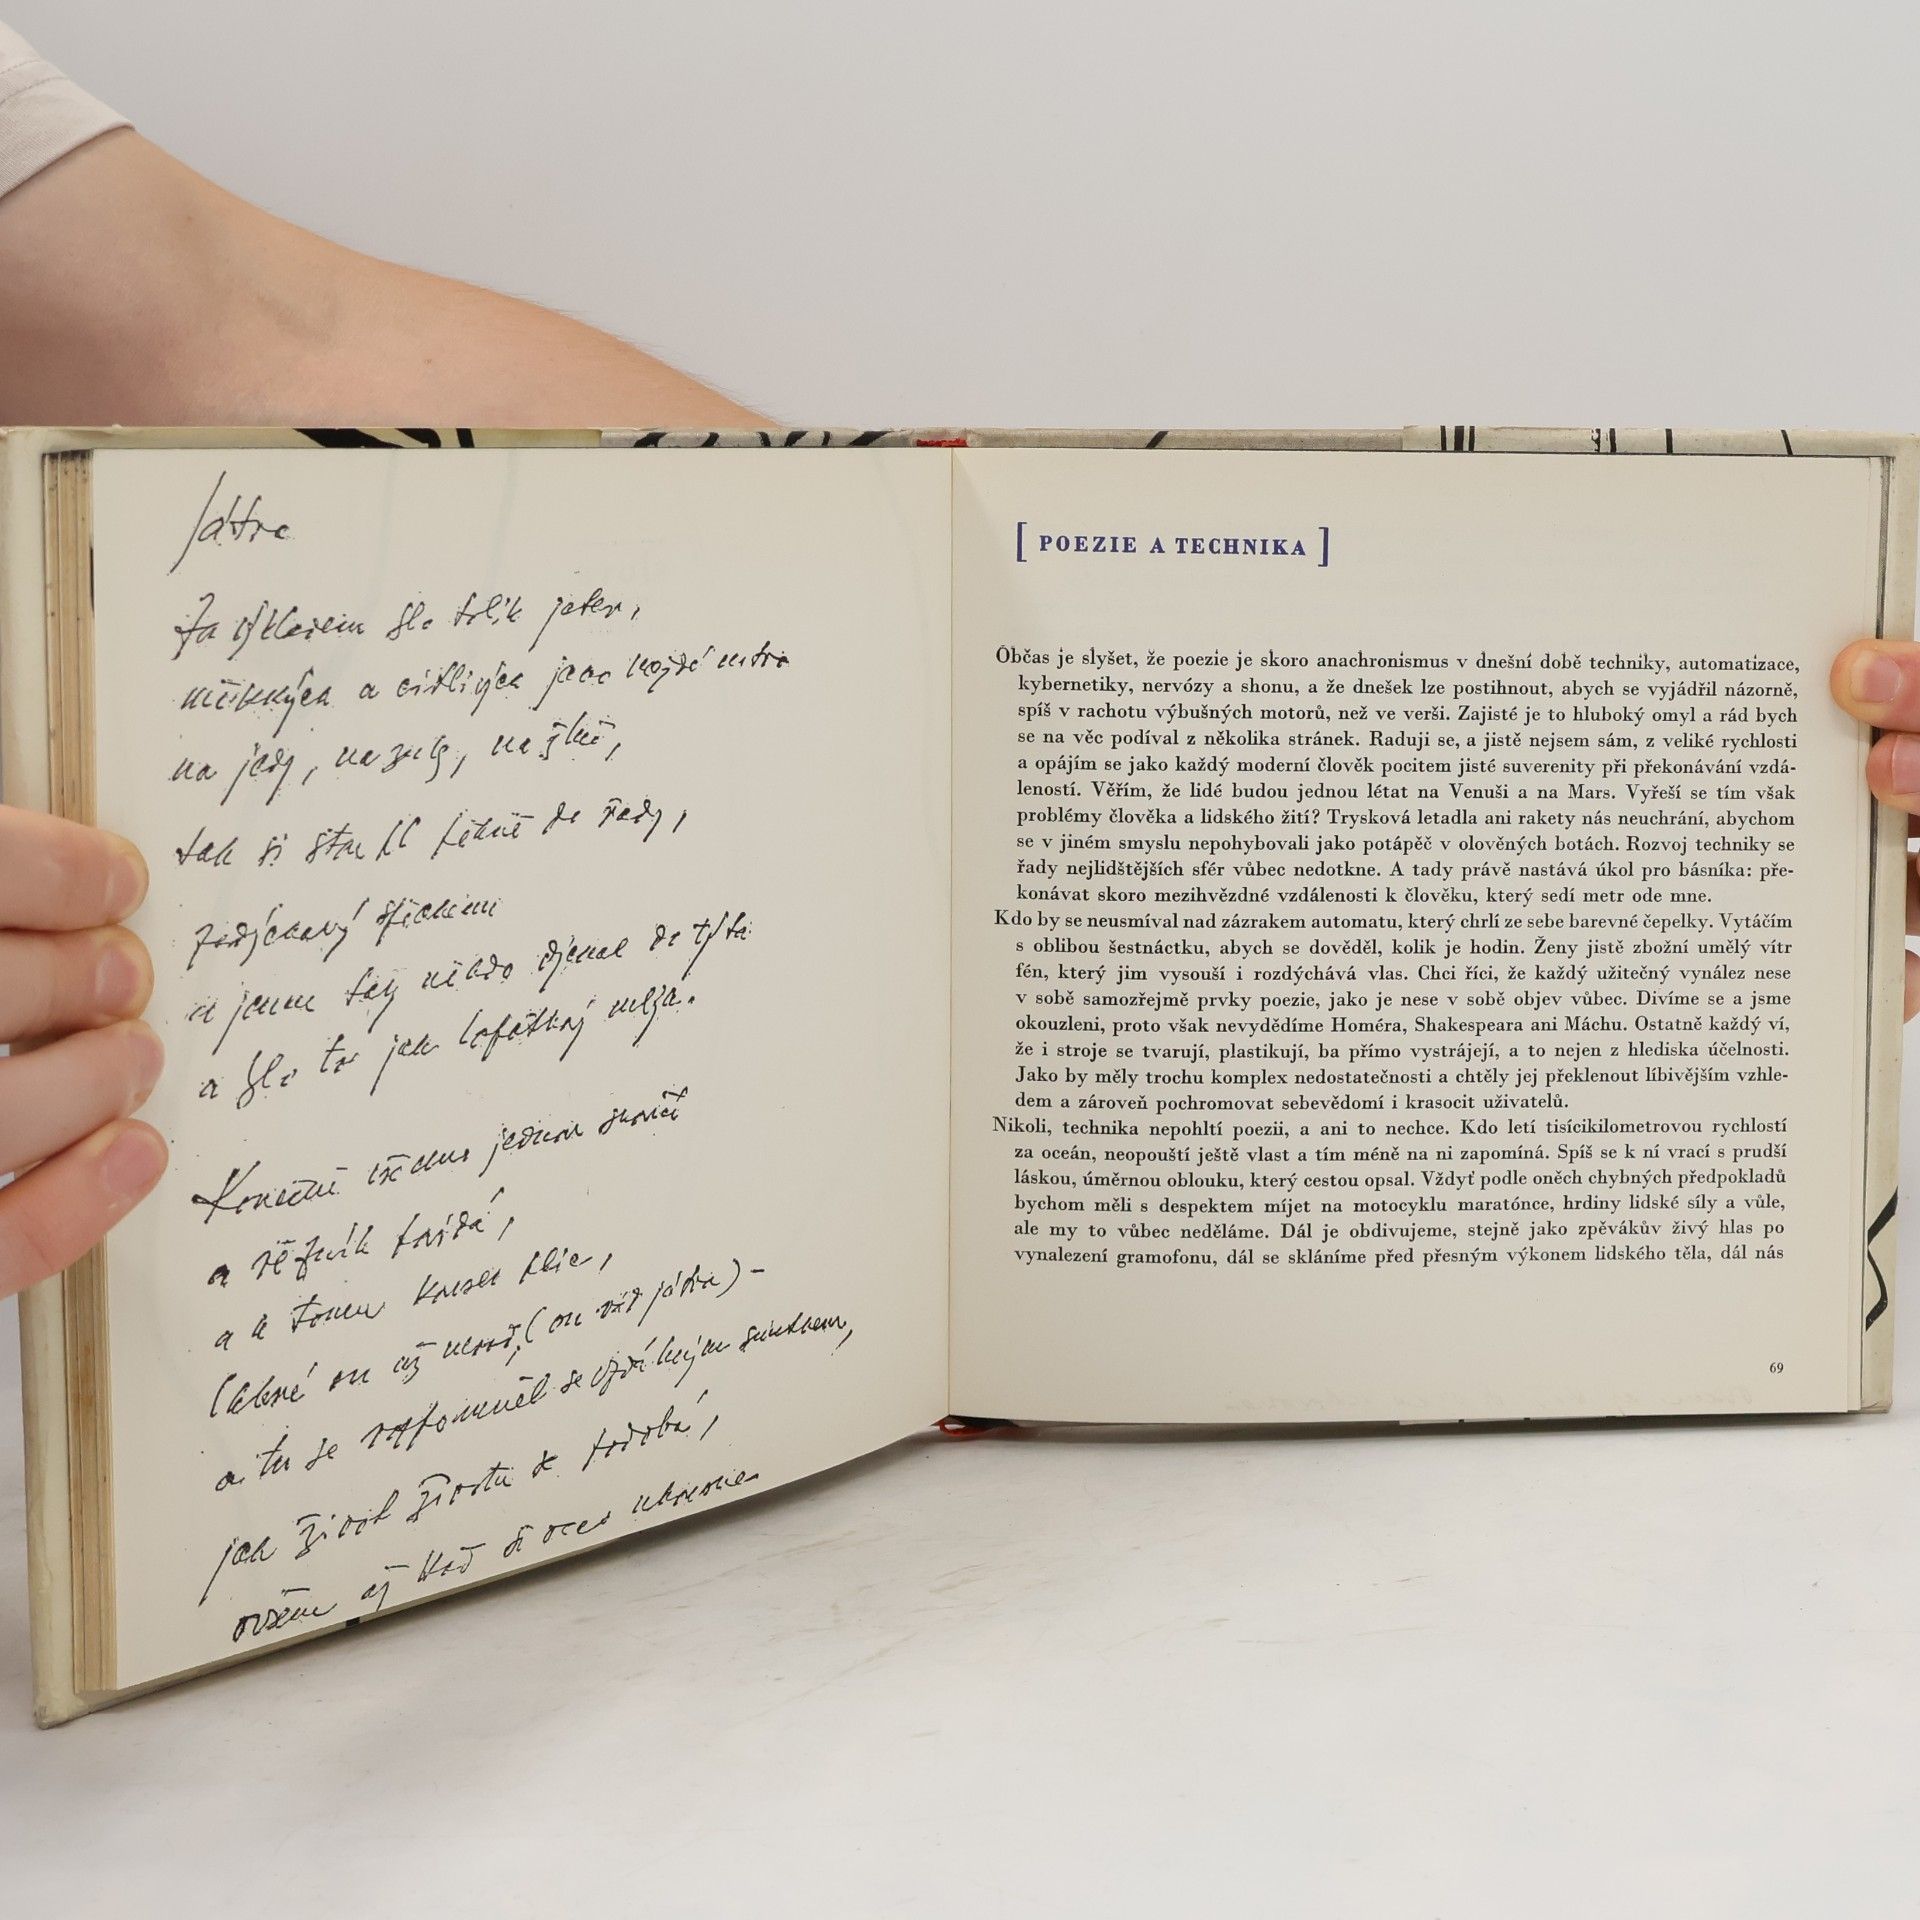 játra
Za výkladem šlo tolik jater,
měkkých a citlivých jako každé nitro
na jedy, na zuby, na žluč,
tak si stoupl pěkně do řady,
a jemu taky někdo dýchal do týla
a šlo to jak lopatkový mlýn.
Konečně všechno jednou končí
a řezník povídá,
a k tomu kousek plic,
(které on už nerad, on rád játra) –
a tu se rozpomněl se vzdáleným smutkem,
jak život životu se podobá,
ovšem až když si ocas ukousne
[ POEZIE A TECHNIKA ]
Občas je slyšet, že poezie je skoro anachronismus v dnešní době techniky, automatizace,
kybernetiky, nervózy a shonu, a že dnešek lze postihnout, abych se vyjádřil názorně,
spíš v rachotu výbušných motorů, než ve verši. Zajisté je to hluboký omyl a rád bych
se na věc podíval z několika stránek. Raduji se, a jistě nejsem sám, z veliké rychlosti
a opájím se jako každý moderní člověk pocitem jisté suverenity při překonávání vzdá-
leností. Věřím, že lidé budou jednou létat na Venuši a na Mars. Vyřeší se tím však
problémy člověka a lidského žití? Trysková letadla ani rakety nás neuchrání, abychom
se v jiném smyslu nepohybovali jako potápěč v olověných botách. Rozvoj techniky se
řady nejlidštějších sfér vůbec nedotkne. A tady právě nastává úkol pro básníka: pře-
konávat skoro mezihvězdné vzdálenosti k člověku, který sedí metr ode mne.
Kdo by se neusmíval nad zázrakem automatu, který chrlí ze sebe barevné čepelky. Vytáčím
s oblibou šestnáctku, abych se dověděl, kolik je hodin. Ženy jistě zbožní umělý vítr
fén, který jim vysouší i rozdýchává vlas. Chci říci, že každý užitečný vynález nese
v sobě samozřejmě prvky poezie, jako je nese v sobě objev vůbec. Divíme se a jsme
okouzleni, proto však nevydědíme Homéra, Shakespeara ani Máchu. Ostatně každý ví,
že i stroje se tvarují, plastikují, ba přímo vystrájejí, a to nejen z hlediska účelnosti.
Jako by měly trochu komplex nedostatečnosti a chtěly jej překlenout líbivějším vzhle-
dem a zároveň pochromovat sebevědomí i krasocit uživatelů.
Nikoli, technika nepohltí poezii, a ani to nechce. Kdo letí tisícikilometrovou rychlostí
za oceán, neopouští ještě vlast a tím méně na ni zapomíná. Spíš se k ní vrací s prudší
láskou, úměrnou oblouku, který cestou opsal. Vždyť podle oněch chybných předpokladů
bychom měli s despektem míjet na motocyklu maratónce, hrdiny lidské síly a vůle,
ale my to vůbec neděláme. Dál je obdivujeme, stejně jako zpěvákův živý hlas po
vynalezení gramofonu, dál se skláníme před přesným výkonem lidského těla, dál nás
69